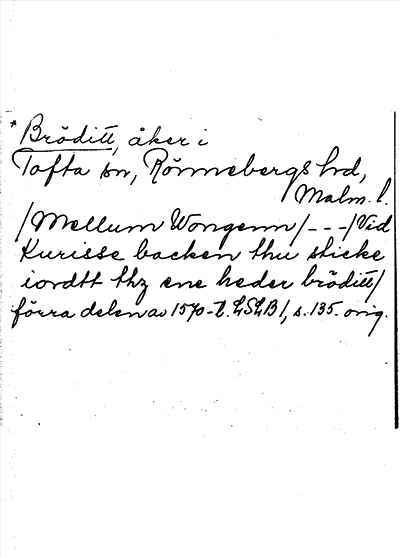 * Bröditt, åker i
Tofta sn, Rönnebergs hd,
Malm. l.
/Mellum Wongenn/ - - - /Vid
Kurisse backen thu sticke
iordtt thz ene heder bröditt/
förra delen av 1570-t. LSLB 1, s. 135. orig.